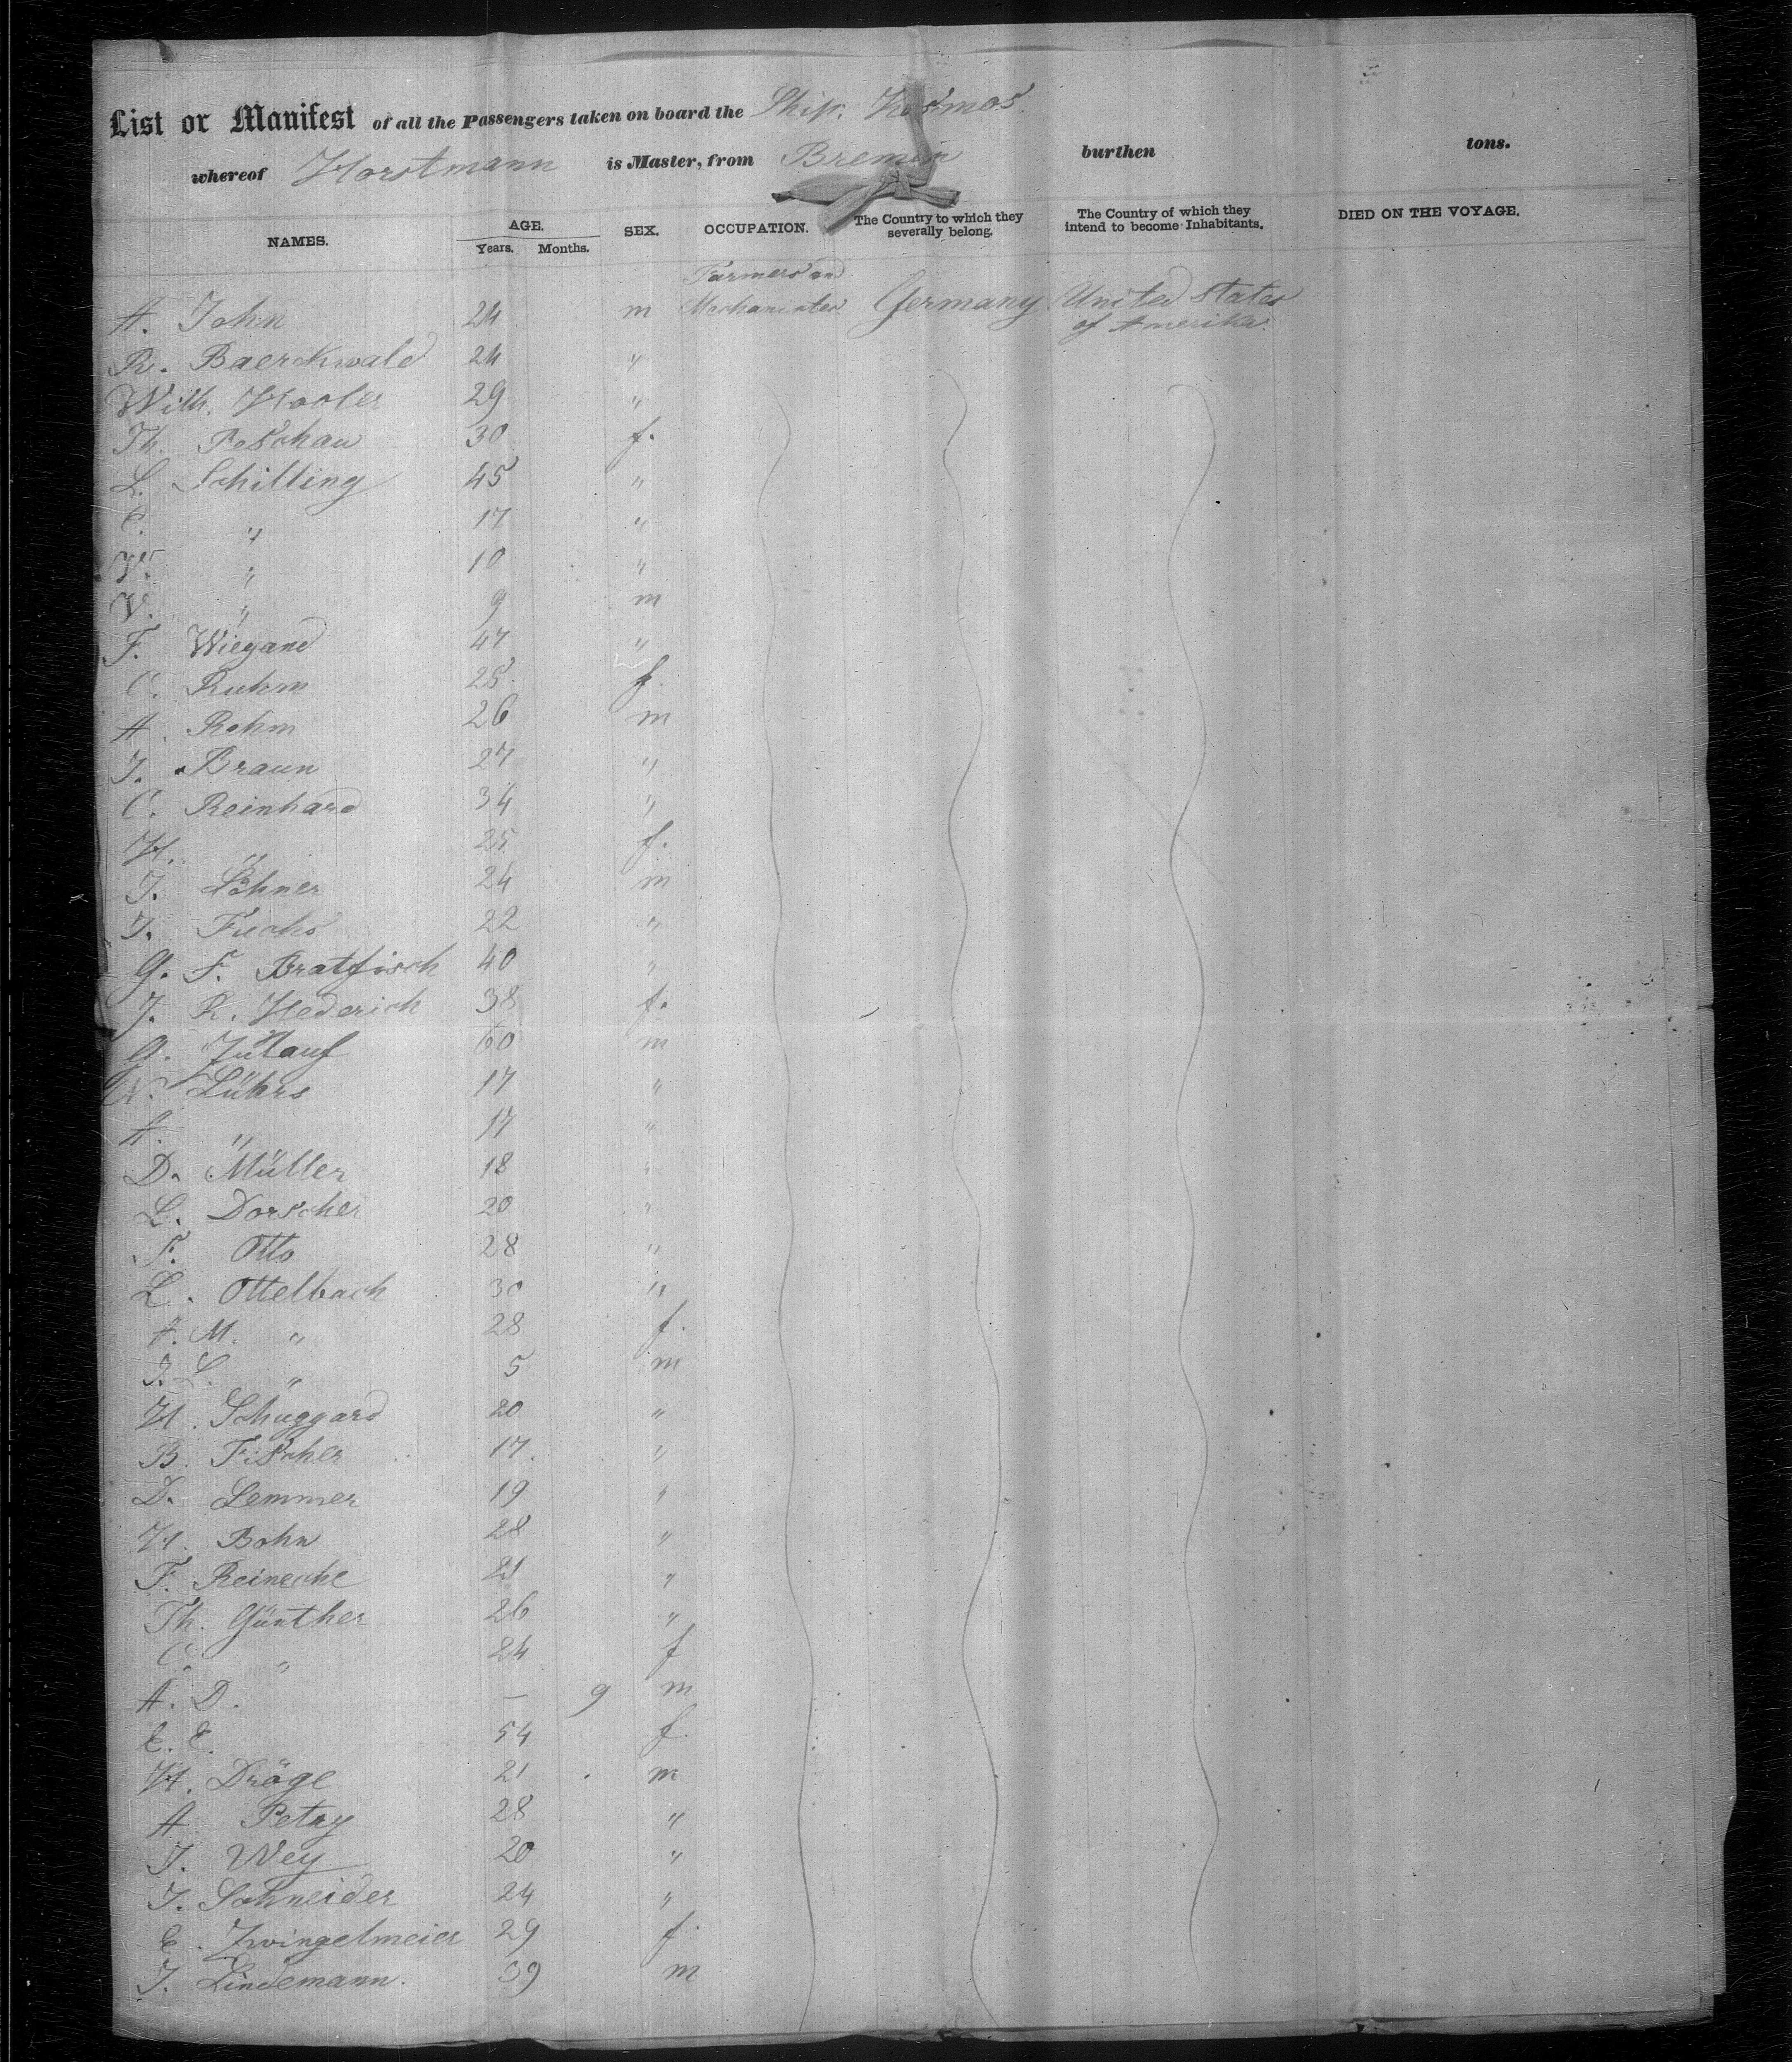 List or Manifest of all the Passengers taken on board the Ship. Kosmos
whereof Horstmann is Master, from Bremen burthen tons.
NAMES. AGE. Years. Months. SEX. OCCUPATION. The Country to which they severally belong. The Country of which they intend to become Inhabitants. DIED ON THE VOYAGE.
Farmers and
A. John 24 m Mechanicker Germany United States
of Amerika.
R. Baerckwald 24 "
Wilh. 29 "
Th. Peschau 30 f.
L. Schilling 45 "
C. " 17 "
W. " 10 "
V. " 9 m
F. Wiegand 47 "
C. Ruhm 25 f.
A. Rehm 26 m
J. Braun 27 "
C. Reinhard 34 "
H. " 25 f.
J. Löhner 24 m
J. Fuchs 22 "
G. F. Bratfisch 40 "
J. R. Hederich 38 f.
G. Zulauf 60 m
N. Lührs 17 "
A. " 17 "
D. Müller 18 "
L. Dorscher 20 "
F. Otto 28 "
L. Ottelbach 30 "
A. M. " 28 f.
J. L. " 5 m
H. Schuggard 20 "
B. Fischer 17. "
D. Lemmer 19 "
H. Bohn 28 "
F. Reinecke 21 "
Th. Günther 26 "
C. " 24 f
A. D. — 9 m
E. E. 54 f.
H. Dröge 21 m
A. Petry 28 "
J. Wey 20 "
J. Schneider 24 "
E. Zwingelmeier 29 f.
J. Lindemann. 39 m